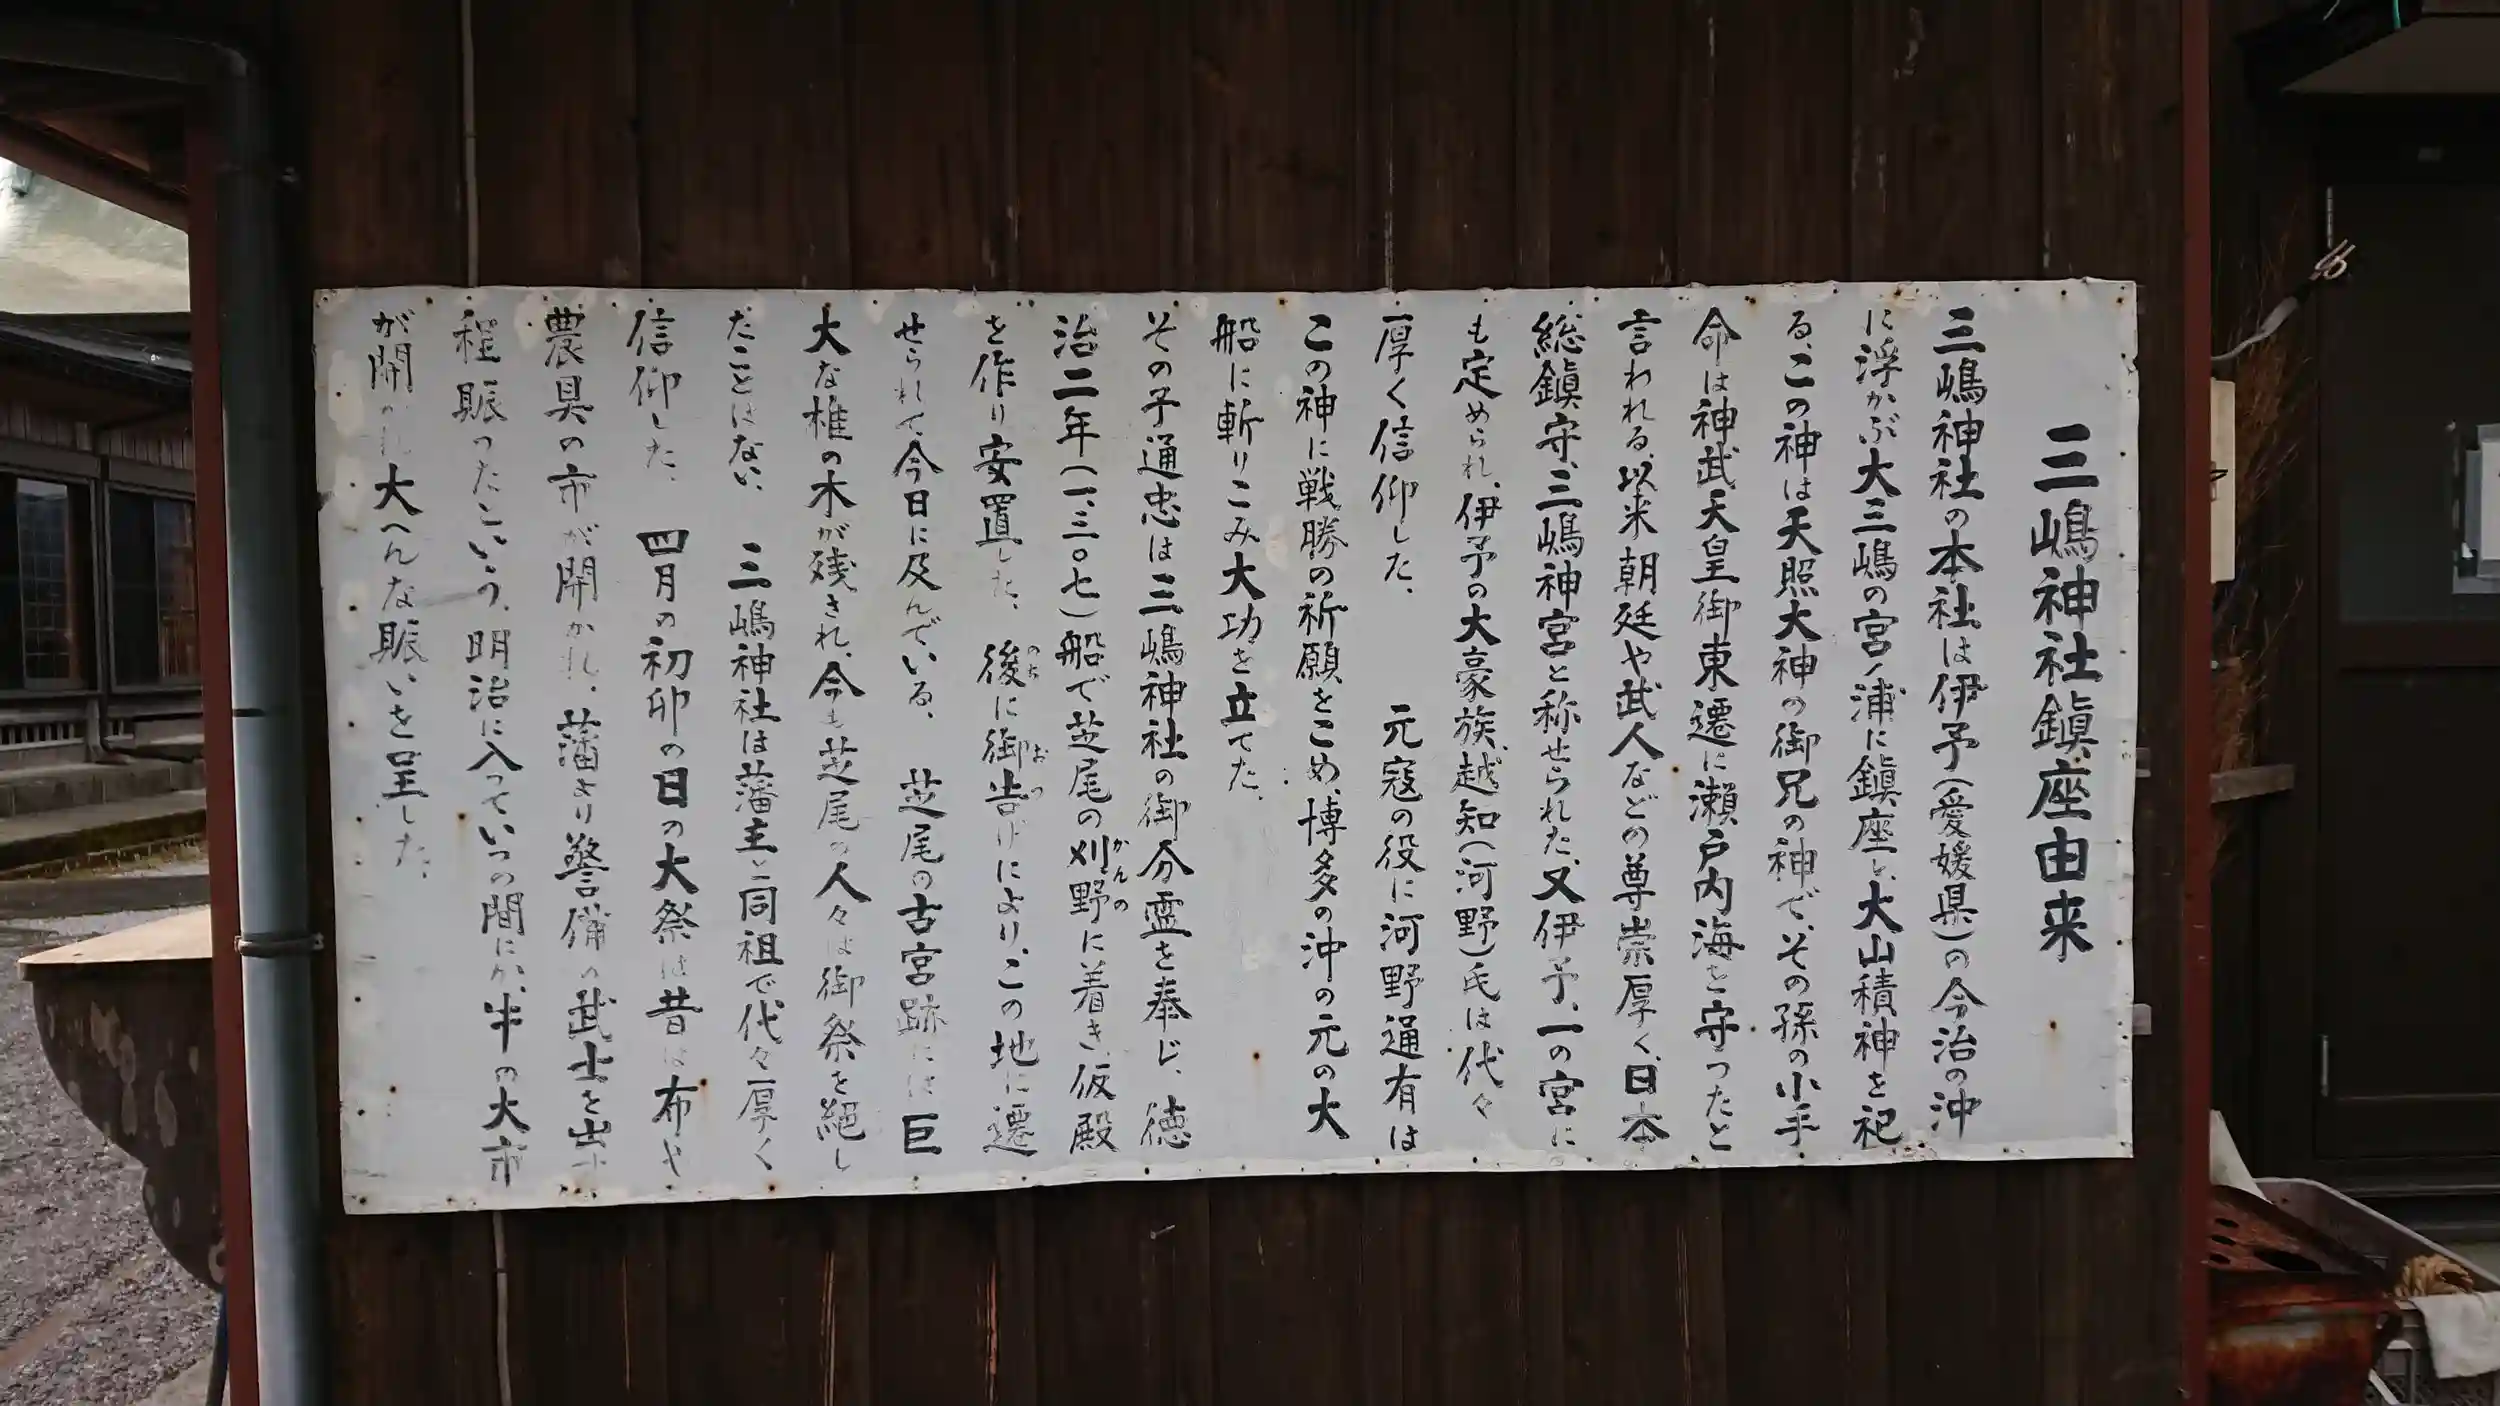 三嶋神社鎭座由来
三嶋神社の本社は伊予(愛媛県)の今治の沖
に浮かぶ大三嶋の宮ノ浦に鎭座し、大山積神を祀
る、この神は天照大神の御兄の神で、その孫の小手
命は神武天皇御東遷に瀬戸内海を守つたと
言われる、以来朝廷や武人などの尊崇厚く、日本
総鎭守、三嶋神宮と称せられた、又伊予、一の宮に
も定められ、伊予の大豪族、越知(河野)氏は代々
厚く信仰した、 元寇の役に河野通有は
この神に戦勝の祈願をこめ、博多の沖の元の大
船に斬りこみ大功を立てた、
その子通忠は三嶋神社の御分霊を奉じ、徳
治二年(一、三〇七)船で芝尾の刈野に着き、仮殿
かんの
を作り安置した、 後に御告げにより、この地に遷
のち おつ
せられて、今日に及んでいる、 芝尾の古宮跡には巨
大な椎の木が残され、今も芝尾の人々は御祭を絶し
だことはない、 三嶋神社は藩主と同祖で代々厚く
信仰した、 四月の初卯の日の大祭は昔は布や
農具の市が開かれ、藩より警備の武士を出す
程賑つたという、明治に入つていつの間にか、牛の大市
が開かれ大へんな賑いを呈した、